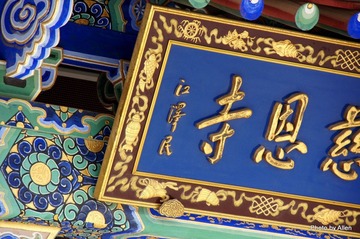 慈恩寺
江澤民
Photo by Allen